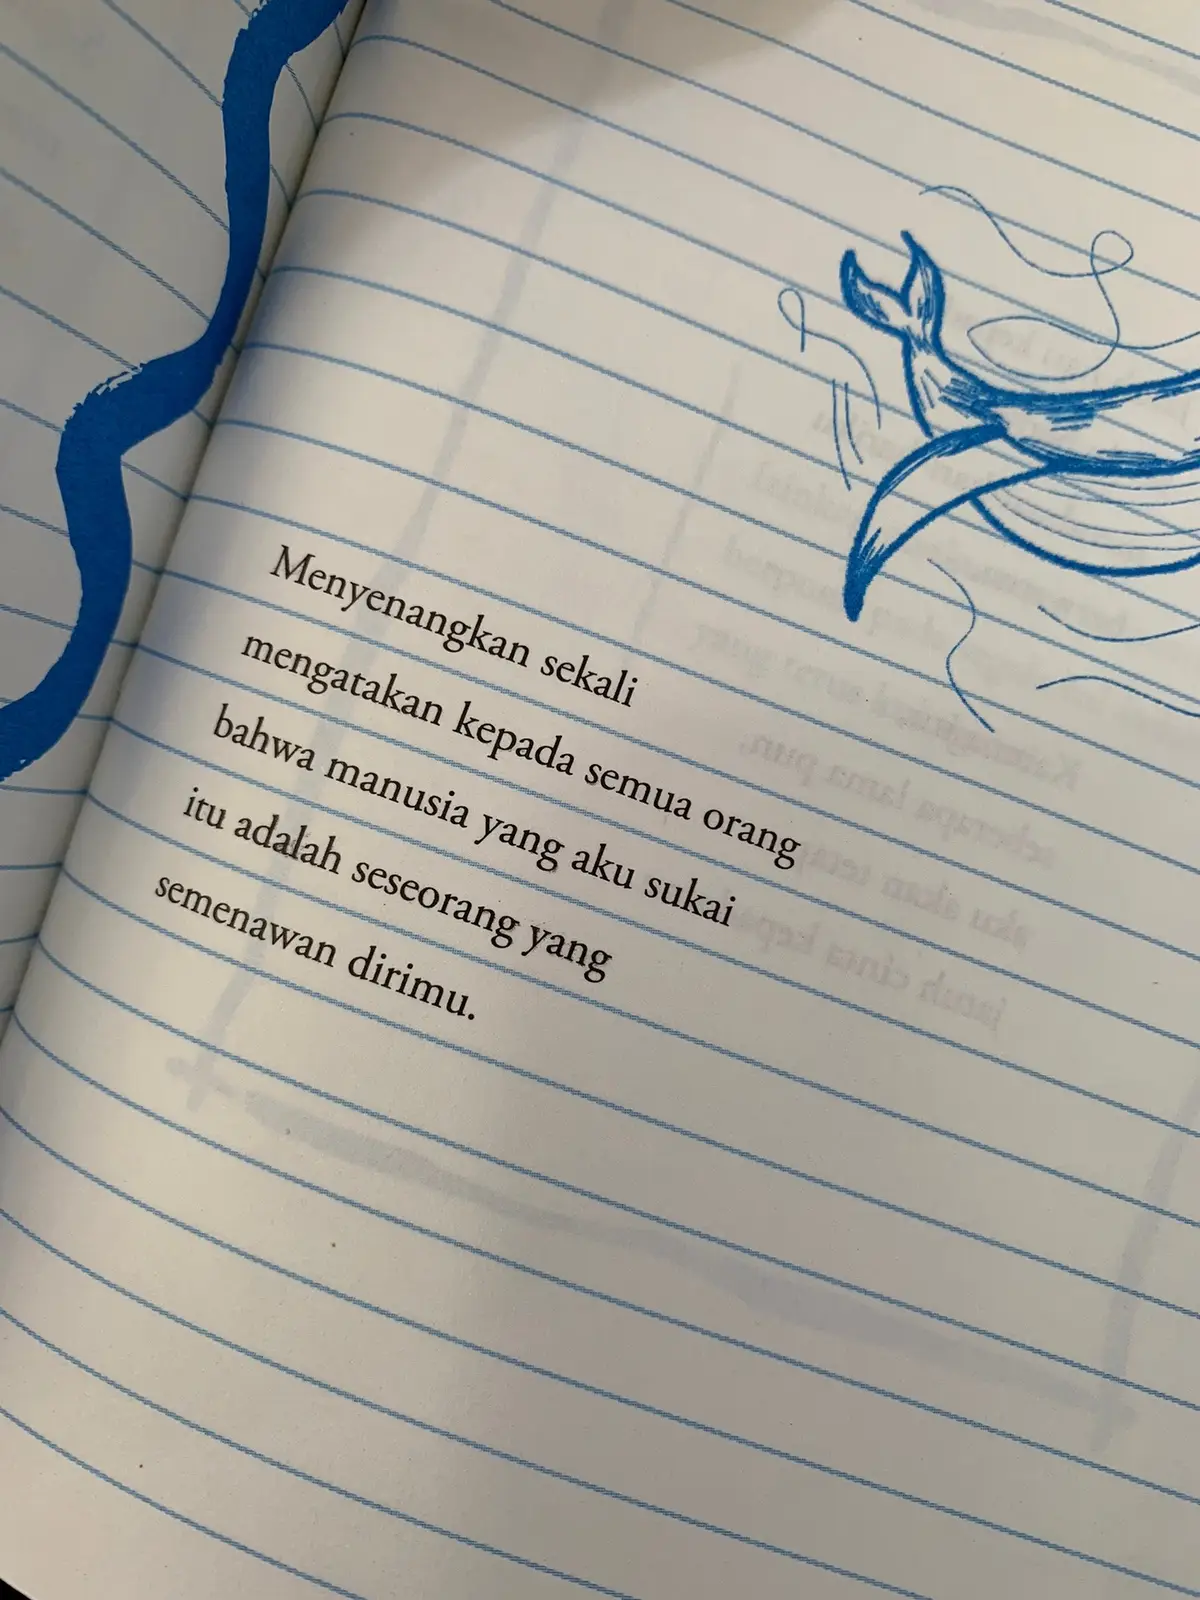 Menyenangkan sekali
mengatakan kepada semua orang
bahwa manusia yang aku sukai
itu adalah seseorang yang
semenawan dirimu.